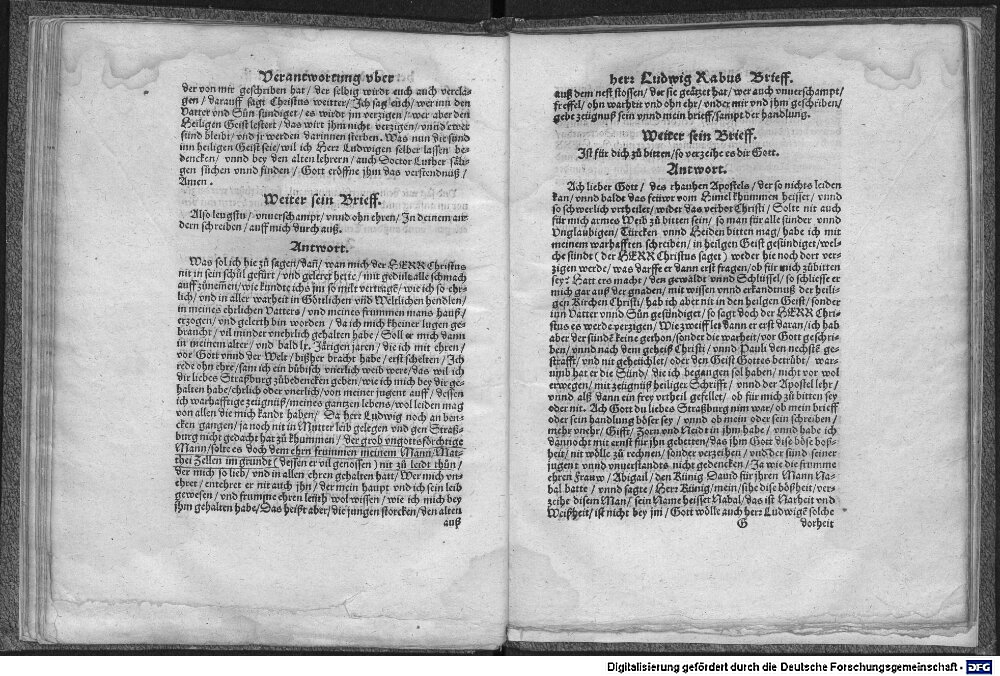 Verantwortung vber
der von mir geschriben hat / der selbig wirdt euch auch verclagen / darauff sagt Christus weitter / Ich sag euch / wer inn den
Vatter vnd Sün sündiget / es wirdt jm verzigen / wer aber den
Heiligen Geist lestert / das wirt jhm nicht verzigen / vnnd ewer
sünd bleibt / vnd jr werden darinnen sterben. Was nun die sünd
inn heiligen Geist seie / wil ich Herr Ludwigen selber lassen bedencken / vnnd bey den alten lehrern / auch Doctor Luther säligen süchen vnnd finden / Gott eröffne jhm das verstendnuß /
Amen.
Weiter sein Brieff.
Also leugstu / vnuerschampt / vnnd ohn ehren / In deinem andern schreiben / auff mich durch auß.
Antwort.
Was sol ich hie zů sagen / dañ / wan mich der HERR Christus
nit in sein schůl gefürt / vnd geleret hette / mit gedult alle schmach
auff zůnemen / wie kundte ichs jm so milt vertragē / wie ich so ehrlich / vnd in aller warheit in Götlichen vnd Weltlichen hendlen /
in meines ehrlichen Vatters / vnd meines frummen mans hauß /
erzogen / vnd gelerth bin worden / da ich mich kheiner lugen gebraucht / vil minder vnehrlich gehalten habe / Soll er mich dann
in meinem alter / vnd bald lx. Järigen jaren / die ich mit ehren /
vor Gott vnnd der Welt / bißher bracht habe / erst schelten / Ich
rede ohn ehre / sam ich ein bübisch vnerlich weib were / das wil ich
dir liebes Straßburg zůbedencken geben / wie ich mich bey dir gehalten habe / ehrlich oder vnerlich / von meiner jugent auff / dessen
ich warhafftige zeügnuß / meines gantzen lebens / wol leiden mag
von allen die mich kandt haben / Da herr Ludwig noch an bencken gangen / ja noch nit in Můtter leib gelegen vnd gen Straßburg nicht gedacht hat zů khummen / der grob vngottsförchtige
Mann / solte es doch dem ehrn frummen meinem Mann / Matthei Zellen im grundt (dessen er vil genossen) nit zů leidt thůn /
der mich so lieb / vnd in allen ehren gehalten hatt / Wer mich vnehret / entehret er nit auch jhn / der mein haupt vnd ich sein leib
gewesen / vnd frumme ehren leüth wol wissen / wie ich mich bey
jhm gehalten habe / Das heißt aber / die jungen storcken / den alten
auß
herr Ludwig Rabus Brieff.
auß dem nest stossen / der sie geätzet hat / wer auch vnuerschampt /
freffel / ohn warheit vnd ohn ehr / vnder mir vnd jhm geschriben /
gebe zeügnuß sein vnnd mein brieff / sampt der handlung.
Weiter sein Brieff.
Ist für dich zů bitten / so verzeihe es dir Gott.
Antwort.
Ach lieber Gott / des rhauhen Apostels / der so nichts leiden
kan / vnnd balde das feüwr vom Himel khummen heisset / vnnd
so schwerlich vrtheilet / wider das verbot Christi / Solte nit auch
für mich armes Weib zů bitten sein / so man für alle sünder vnnd
Vnglaubigen / Türcken vnnd Heiden bitten mag / habe ich mit
meinem warhafften schreiben / in heilgen Geist gesündiget / welche sündt (der HERR Christus saget) weder hie noch dort verzigen werde / was darffe er dann erst fragen / ob für mich zůbitten
sey? Hatt ers macht / den gewaldt vnnd Schlüssel / so schliesse er
mich gar auß der gnaden / mit wissen vnnd erkandtnuß der heiligen Kirchen Christi / hab ich aber nit in den heilgen Geist / sonder
inn Vatter vnnd Sün gesündiget / so sagt doch der HERR Christus es werde verzigen / Wie zweiflet dann er erst daran / ich hab
aber der sünde keine gethon / sonder die warheit / vor Gott geschriben / vnnd nach dem geheiß Christi / vnnd Pauli den nechste gestrafft / vnd nit geheüchlet / oder den Geist Gottes betrübt / warumb hat er die Sünd / die ich begangen sol haben / nicht vor wol
erwegen / mit zeügnuß heiliger Schrifft / vnnd der Apostel lehr /
vnnd alß dann ein frey vrtheil gesellet / ob für mich zů bitten sey
oder nit. Ach Gott du liebes Straßburg nim war / ob mein brieff
oder sein handlung böser sey / vnnd ob mein oder sein schreiben /
mehr vnehr / Gifft / Zorn vnd Neidt in jhm habe / vnnd habe ich
dannocht mit ernst für jhn gebetten / das jhm Gott dise böse boßheit / nit wölle zů rechnen / sonder verzeihen / vnd der sünd seiner
jugent vnnd vnuerstandts nicht gedencken / Ja wie die frumme
ehren frauw / Abigail / den Künig Dauid für ihren Mann Nabal batte / vnnd sagte / Herr Künig / mein / sihe dise bößheit / verzeihe disem Man / sein Name heisset Nabal / das ist Narheit vnd
Weißheit / ist nicht bey jm / Gott wölle auch herr Ludwigē solche
G dorheit
Digitalisierung gefördert durch die Deutsche Forschungsgemeinschaft - DFG